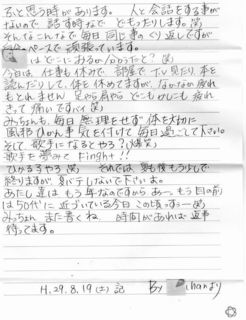 ふと思う時があります。 人と会話をする事が
ないので 話す時など どもったりします。(笑)
そんなこんなで毎日 同じ事のくり返しですが
ペースで 頑張っています。
はどーこにおるーのぉーったと? (笑)
今日は 仕事も休みで、部屋で TV見たり 本を
読んだりして、体を 休めてますが、なかなか疲れ
もとれません 足から肩やら どこもかしこも 疲れ
きって 痛いですバイ(笑)
みっちょんも、毎日 無理をせず 体を大切に
風邪ひかん事 気を付けて 毎日過ごして下さい。
そして 歌手になるとやろ? (爆笑)
歌手を夢みて Fight!!
ひかるそやろ (笑) それでは、夏も後もう少しで
終りますが 夏バテしないで下さいよ。
あたし達は もう年なのですから あーもう目の前
は50代に 近づいている今日この頃です。(笑)
みっちょん また書くね。 時間があれば 返事
待ってます。
H.29.8.19(土) 記 By